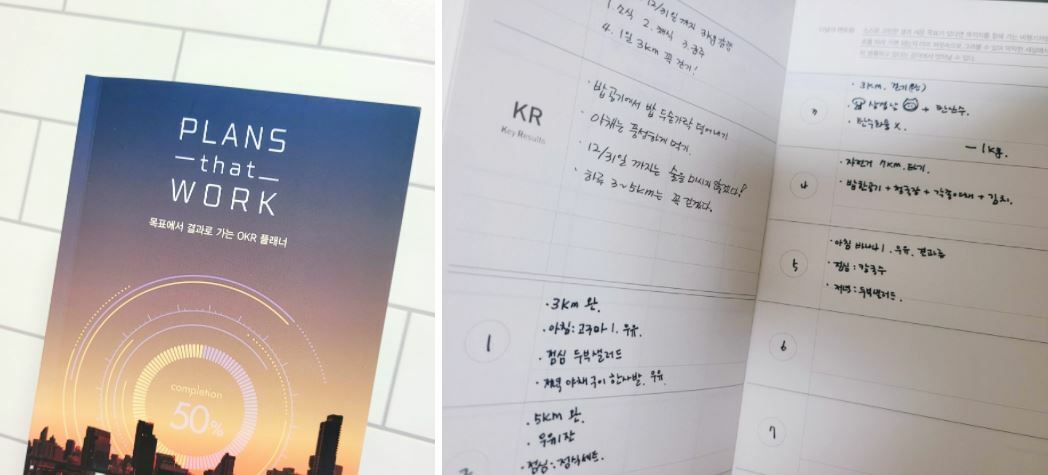 PLANS
that
WORK
목표에서 결과로 가는 OKR 플래너
completion
50%
12/31일 까지
1. 소식 2. 채식 3. 금주
4. 1일 3km 꼭 걷기!
KR
Key Results
· 밥공기에서 밥 두숟가락 덜어내기
· 야채는 풍성하게 먹기.
· 12/31일 까지는 술을 마시지 않겠다!
· 하루 3~5km는 꼭 걷겠다.
1
· 3km 완.
· 아침: 고구마 1. 우유.
· 점심 두부샐러드
· 저녁 야채구이 한사발. 우유.
· 5km 완.
· 우유1잔
· 점심: 정식세트.
3
· 3km. 걷기
· 탄수화물 X.
- 1kg.
4
· 자전거 7km. 타기.
· 밥반공기 + 청국장 + 각종야채 + 김치.
5
· 아침 바나나 1. 우유. 견과류
· 점심: 칼국수
· 저녁: 두부샐러드.
6
7